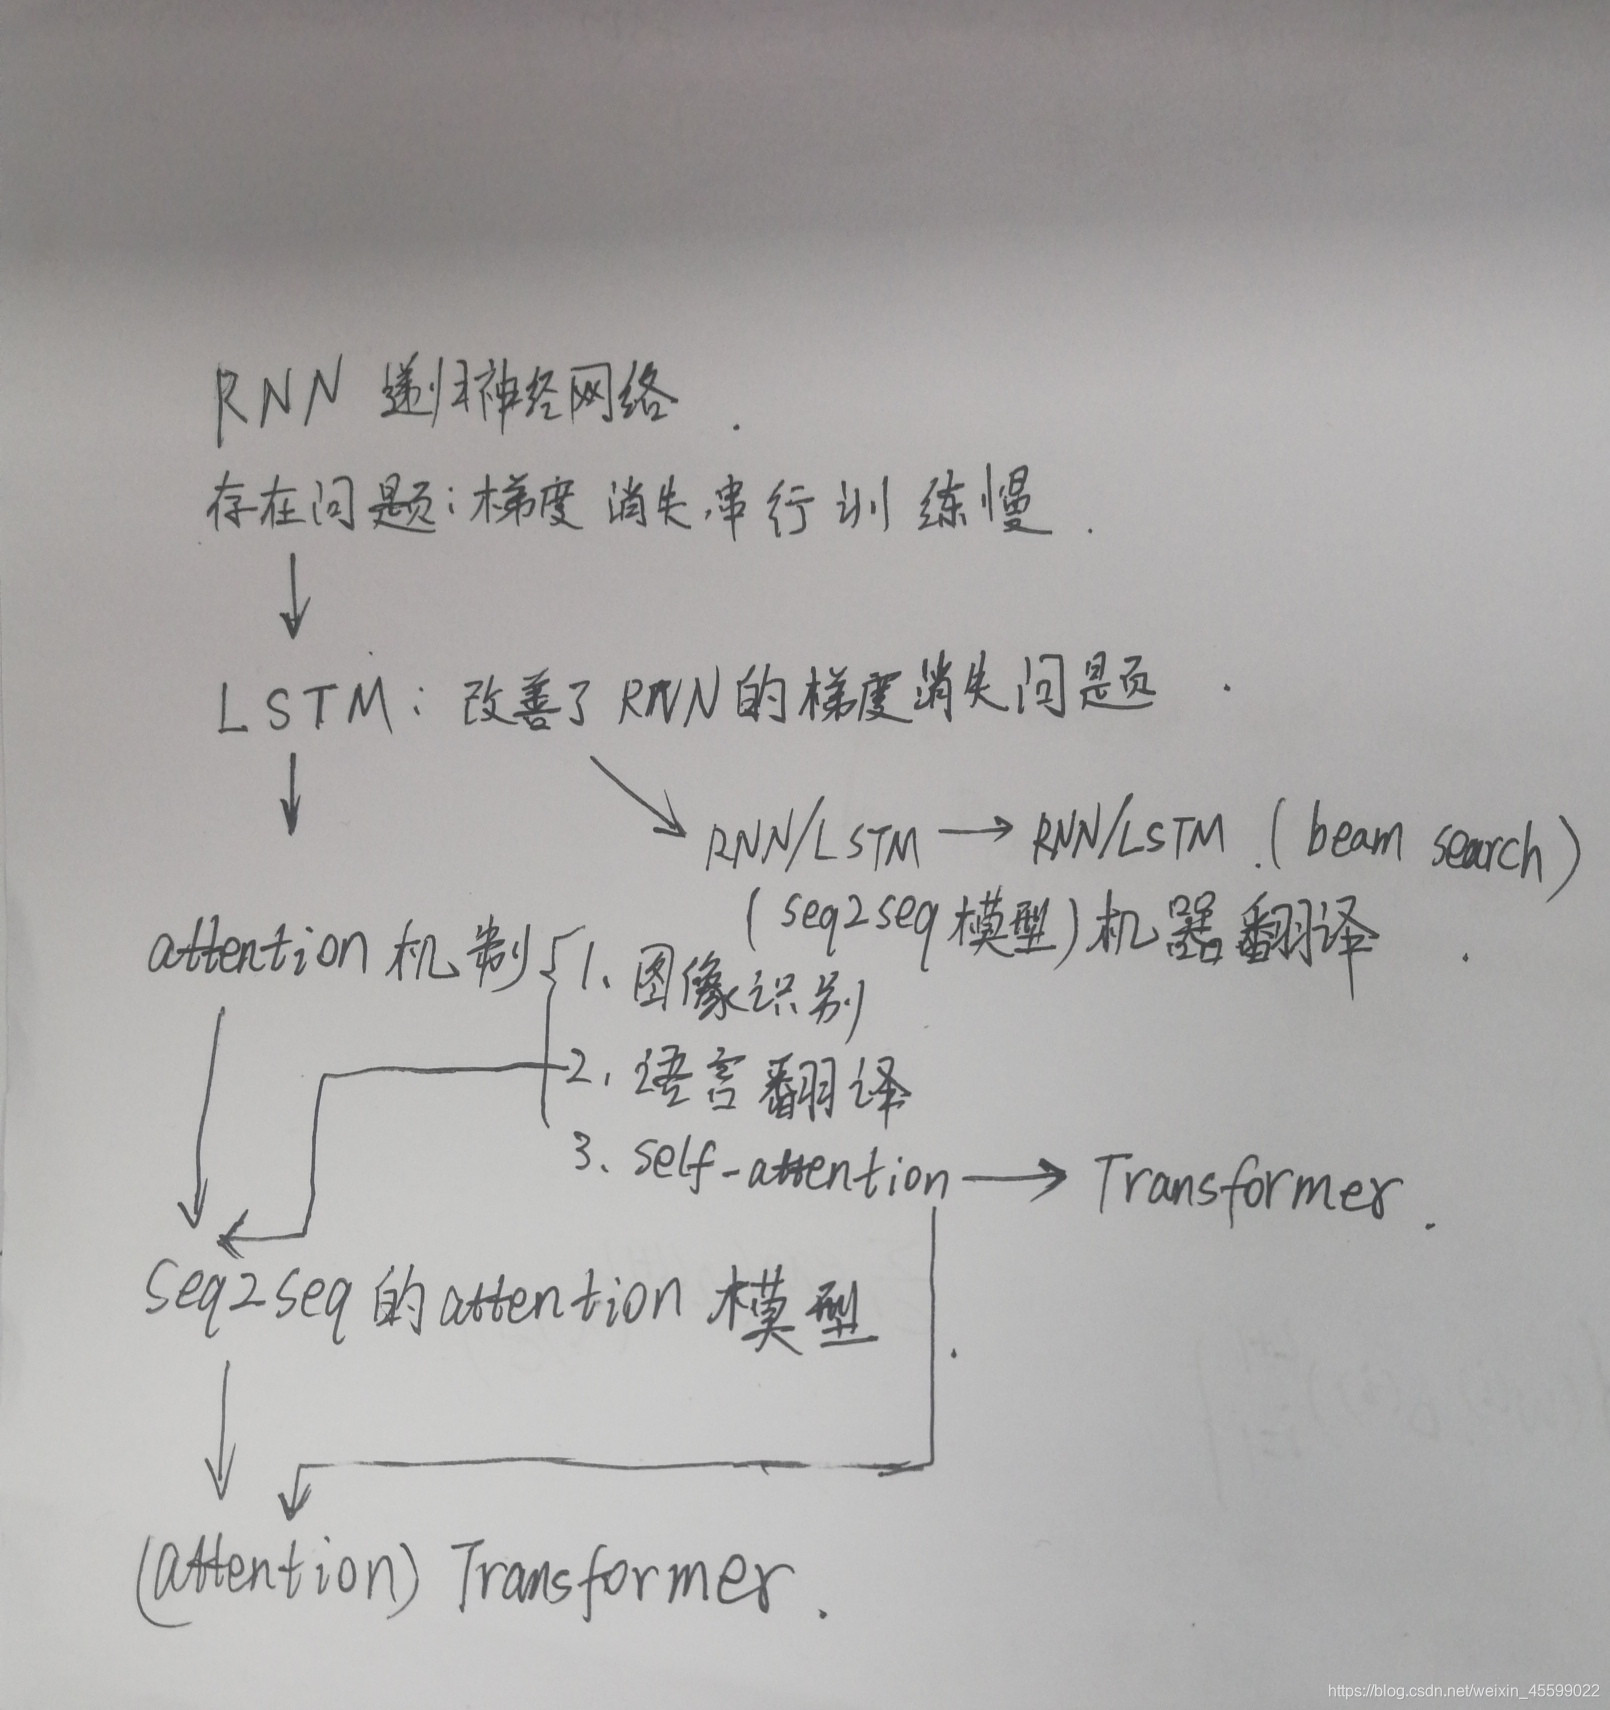 RNN 递归神经网络.
存在问题:梯度消失,串行训练慢.
LSTM:改善了RNN的梯度消失问题.
RNN/LSTM → RNN/LSTM.(beam search)
(seq2seq模型)机器翻译.
attention机制{1.图像识别
2.语言翻译
3.self-attention → Transformer.
seq2seq的attention模型.
(attention) Transformer.
https://blog.csdn.net/weixin_45599022